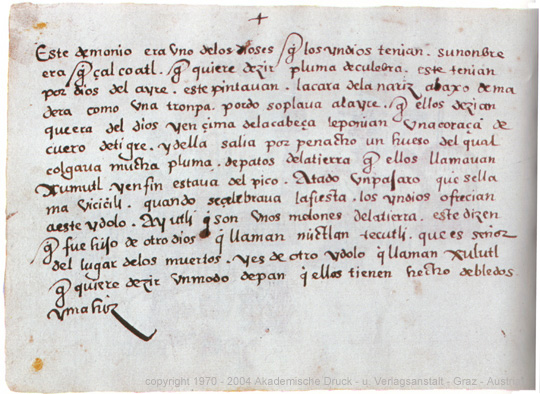 Este demonio era uno delos dioses q̃ los yndios tenian. su nonbre
era q̃çalcoatl. q̃ quiere dezir pluma deculebra. este tenian
por dios del ayre. este pintavan. la cara dela nariz abaxo de ma
dera como una tronpa. pordo soplava al ayre. q̃ ellos dezian
que era del dios yen çima dela cabeça leponian una coraça de
cuero detigre. ydella salia por penacho un hueso del qual
colgava mucha pluma. depatos delatierra q̃ ellos llamavan
xumutl. yen fin estava del pico. Atado unpaxaro que sella
ma viciçili. quando secelebrava lafiesta. los yndios ofrecian
aeste ydolo. Ayutli q̃ son unos melones delatierra. este dizen
q̃ fue hijo de otro dios q̃ llaman mictlan tecutli. que es señor
del lugar delos muertos. yes de otro ydolo q̃ llaman xulutl
q̃ quiere dezir unmodo depan q̃ ellos tienen hecho debledos
y mahiz
copyright 1970 - 2004 Akademische Druck - u. Verlagsanstalt - Graz - Austria